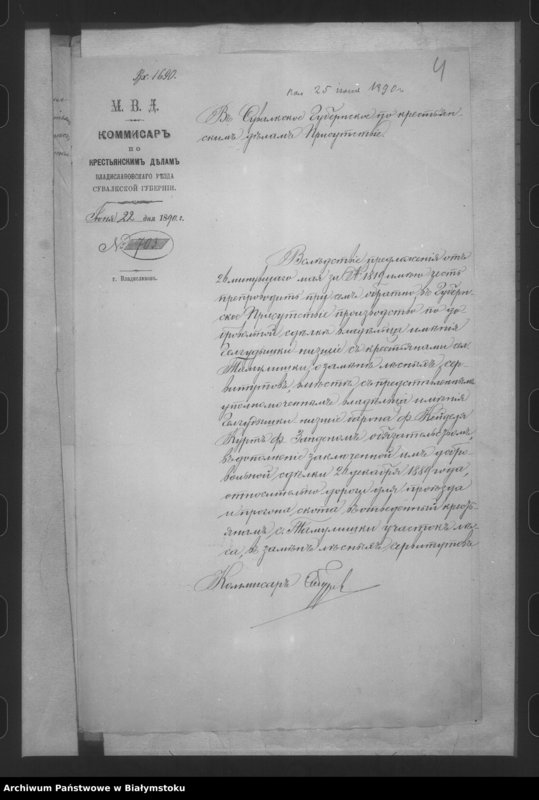 Вх. 1690.
4
Пол 25 июня 1890 г.
М. В. Д.
КОММИСАРЪ
ПО
КРЕСТЬЯНСКИМЪ ДѢЛАМЪ
ВЛАДИСЛАВОВСКАГО УѢЗДА
СУВАЛКСКОЙ ГУБЕРНІИ.
Іюня 22 дня 1890 г.
№ 703
г. Владиславовъ.
Въ Сувалкское Губернское по крестьян-
скимъ дѣламъ Присутствіе.
Вслѣдствіе предложенія отъ
26 минувшаго мая за № 1819 имѣю честь
препроводить при семъ обратно въ Губерн-
ское Присутствіе производство по до-
бровольной сдѣлкѣ владѣльца имѣнія
низшіе съ крестьянами сел.
о замѣнѣ лѣсныхъ сер-
витутовъ, вмѣстѣ съ представленнымъ
уполномоченнымъ владѣльца имѣнія
низшіе барона ф. Кейделя
Куртъ ф. обязательствомъ,
въ дополненіе заключенной имъ добро-
вольной сдѣлки 26 декабря 1889 года,
относительно дороги для проѣзда
и прогона скота въ отведенный кресть-
янамъ с. участокъ лѣ-
са, въ замѣнъ лѣсныхъ сервитутовъ
Коммисаръ
Archiwum Państwowe w Białymstoku